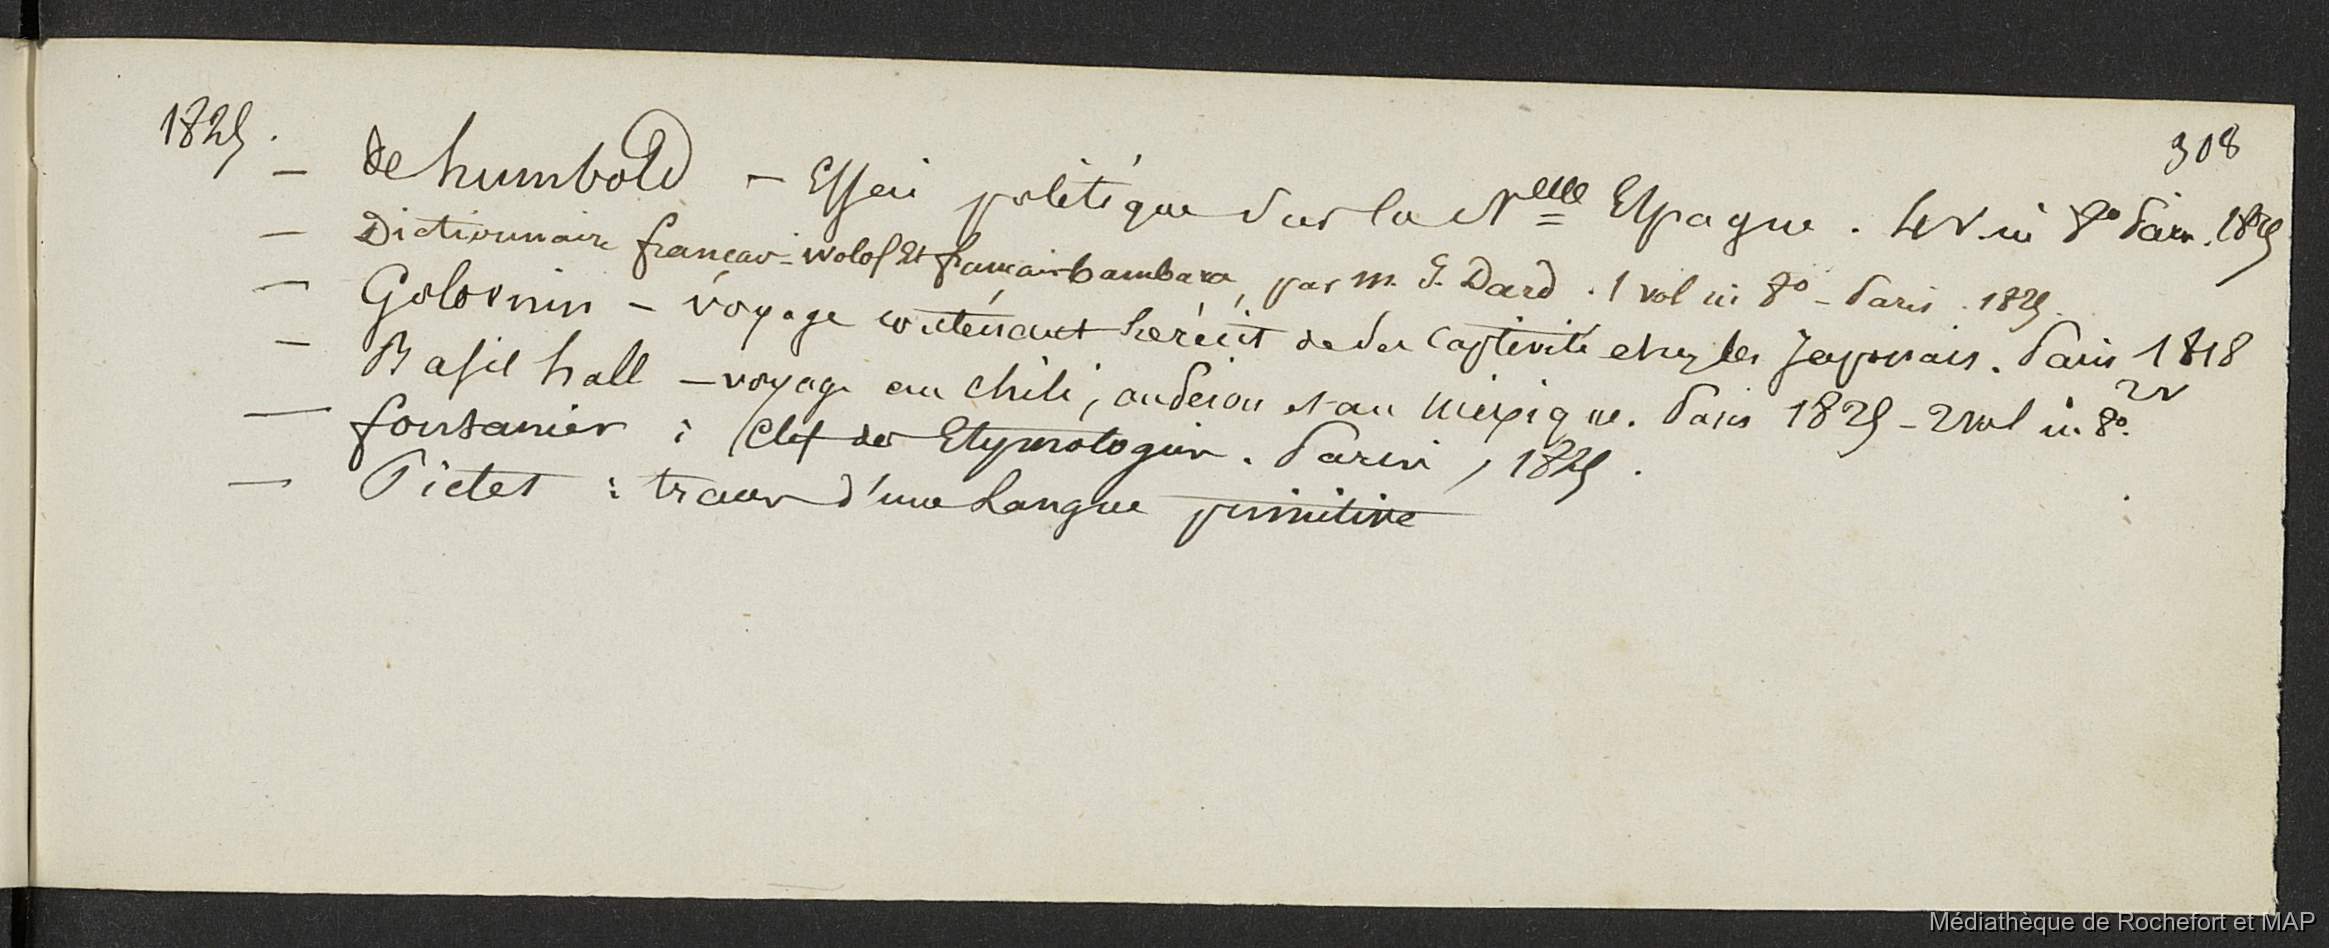 308
1825.
— de humbold — Essai politique sur la Nelle Espagne. 4 v. in 8° Paris. 1825
— Dictionnaire français-wolof et français bambara, par m. J. Dard. 1 vol in 8° - Paris. 1825.
— Golovnin — voyage contenant le récit de sa captivité chez les Japonais. Paris 1818
2 v
— Basil hall — voyage au Chili, au Pérou et au Mexique. Paris 1825 - 2 vol in 8°.
— fontanier : Clef des Etymologies. Paris, 1825.
— Pictet : traces d'une Langue primitive
Médiathèque de Rochefort et MAP